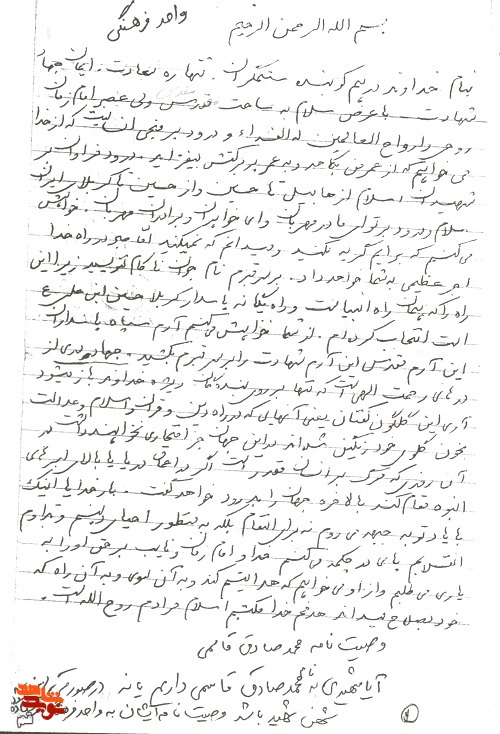 واحد فرهنگی
بسم الله الرحمن الرحیم
بنام خداوند در هم کوبنده ستمگران. تنها ره سعادت، ایمان جهاد
شهادت. با عرض سلام به ساحت قدس ولی عصر امام زمان
روحی و ارواح العالمین له الفداء و درود بر منجی انسانیت که از خدا
می خواهیم که از عمر من بکاهد و به عمر پر برکتش بیفزاید. درود فراوان بر
شهیدان اسلام از هابیل تا حسین و از حسین تا کربلای ایران
سلام و درود بر تو ای مادر مهربان و ای خواهران و برادران مهربان. خواهش
می کنم که برایم گریه نکنید و میدانم که نمیکنید اما صبر در راه خدا
اجر عظیمی به شما خواهد داد. بر قبرم نام جوان ناکام ننویسید زیرا این
راه را که همان راه انبیا است و راه یگانه پاسدار کربلا حسین ابن علی ع
است انتخاب کرده ام. از شما خواهش می کنم آرم سپاه پاسداران
این آرم مقدس این آرم شهادت را بر سر قبرم بکشید. جهاد دری از
درهای رحمت الهی است که تنها بر روی بندگان ویژه خداوند باز میشود
آری این گلگون کفنان یعنی آنهای که در راه دین و قرآن و اسلام و عدالت
بخون گلوی خود رنگین شده اند در این جهان جز افتخاری نخواهند داشت
آن روزی که مرگ بر انسان مقدر است اگر در اعماق دریا یا بالای ابرهای
انبوه مقام کند بالاخره جهان را بدرود خواهد گفت. بار خدایا اینک
با یاد تو به جبهه می روم نه برای انتقام بلکه به منظور احیای دینم و تداوم
انقلابم پای در چکمه می کنم خدا و امام زمان و نایب بر حق او را به
یاری می طلبم و از او می خواهم که هدایتم کند و به آن سوی و به آن راه که
خود صلاح میداند هدفم خدا مکتبم اسلام مرادم روح الله است.
وصیت نامه محمد صادق قاسمی
آیا شهیدی به نام محمد صادق قاسمی داریم یا نه در صورتی که این
شخص شهید باشد وصیت نامه ایشان به واحد
۱